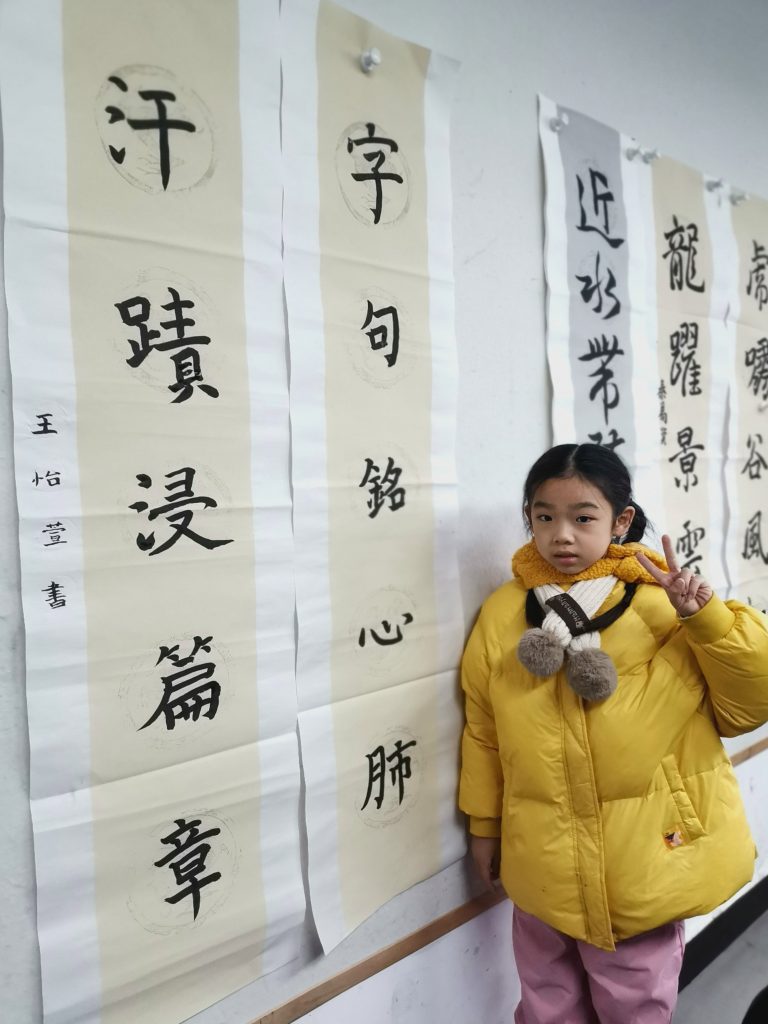 虎嘯谷風
龍躍景雲
近水帶
字句銘心肺
汗蹟浸篇章
王怡萱書